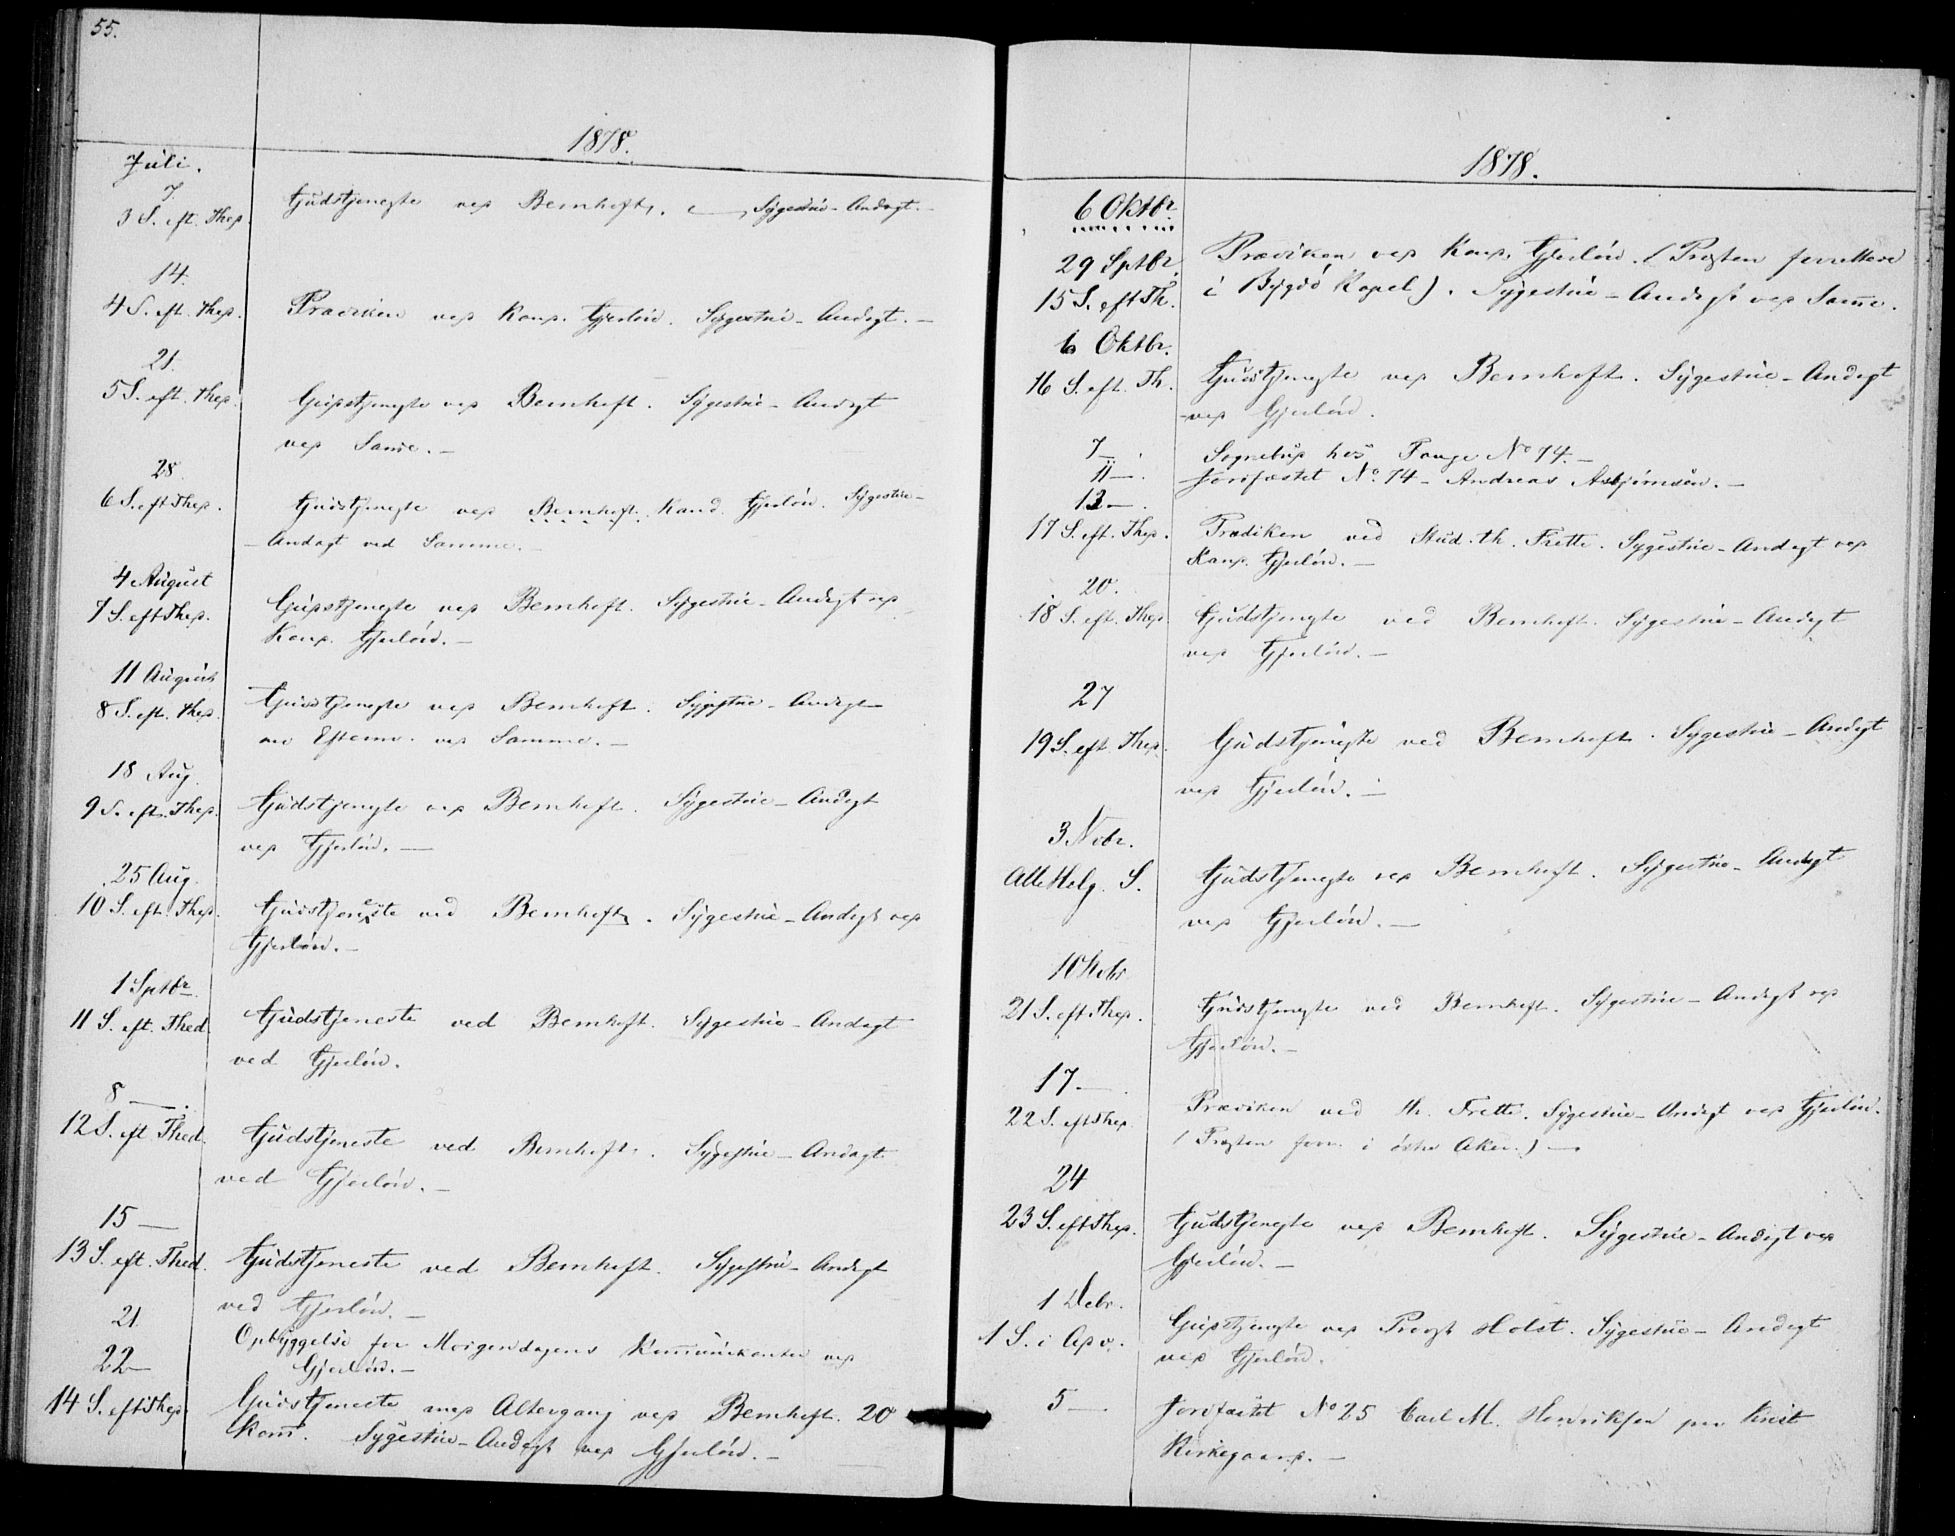 55.
1878.
Juli.
7.
3 S. eft. Thed. Gudstjeneste ved Bernhoft. Sygestue-Andagt.-
14.
4 S. eft. Thed. Prædiken ved Kand. Gjerløw. Sygestue-Andagt.-
21.
5 S. eft. Thed. Gudstjeneste ved Bernhoft. Sygestue-Andagt
ved Samme.-
28.
6 S. eft Thed. Gudstjeneste ved Bernhoft. Kand. Gjerløw. Sygestue-
-Andagt ved Samme.-
4 August
7 S. eft Thed. Gudstjeneste ved Bernhoft. Sygestue-Andagt ved
Kand. Gjerløw.-
11 August
8 S. eft. Thed. Gudstjeneste ved Bernhoft. Sygestue-Andagt
om Efterm. ved Samme.-
18 Aug.
9 S. eft. Thed. Gudstjeneste ved Bernhoft. Sygestue-Andagt
ved Gjerløw.-
25 Aug.
10 S. eft. Thed. Gudstjeneste ved Bernhoft. Sygestue-Andagt ved
Gjerløw.-
1 Sptbr.
11 S. eft. Thed. Gudstjeneste ved Bernhoft. Sygestue-Andagt
ved Gjerløw.
8 -.
12 S. eft Thed. Gudstjeneste ved Bernhoft. Sygestue-Andagt
ved Gjerløw.-
15 -
13 S. eft. Thed. Gudstjeneste ved Bernhoft. Sygestue-Andagt
ved Gjerløw.-
21. Opbyggelse for Morgendagens Kommunikanter ved
22 - Gjerløw.-
14 S. eft Thed. Gudstjeneste med Altergang ved Bernhoft. 20
Kom. Sygestue-Andagt ved Gjerløw.-
1878.
6 Oktbr.
29 Sptbr. Prædiken ved Kand. Gjerløw. (Præsten forrettede
15 S. eft Th. i Bygdø Kapel). Sygestue-Andagt ved Same.
6 Oktbr.
16 S. eft. Th. Gudstjeneste ved Bernhoft. Sygestue-Andagt
ved Gjerløw.
7 -. Sognebud hos Fange No 74.-
11 -. Jordfæstet No. 74 - Andreas Asbjørnsen.-
13 -.
17 S. eft. Thed. Prædiken ved Stud. th. Frette. Sygestue-Andagt ved
Kand. Gjerløw.-
20.
18 S. eft. Thed. Gudstjeneste ved Bernhoft. Sygestue-Andagt
ved Gjerløw.-
27
19 S. eft. Thed. Gudstjeneste ved Bernhoft. Sygestue-Andagt
ved Gjerløw.-
3 Nvbr.
Alle Helg. S. Gudstjeneste ved Bernhoft. Sygestue-Andagt
ved Gjerløw.-
10 Nvbr
21 S. eft Thed. Gudstjeneste ved Bernhoft. Sygestue-Andagt ved
Gjerløw.-
17 -.
22 S. eft Thed. Prædiken ved th. Frette. Sygestue-Andagt ved Gjerløw.
(Præsten forr. i østre Aker.) -
24
23 S. eft Thed. Gudstjeneste ved Bernhoft. Sygestue-Andagt ved
Gjerløw.-
1 Debr.
1 S. i Adv. Gudstjeneste ved Provst Holst. Sygestue-Andagt
ved Gjerløw.
5 - Jordfæstet No 25 Carl M. Henriksen paa Krist
Kirkegaard.-